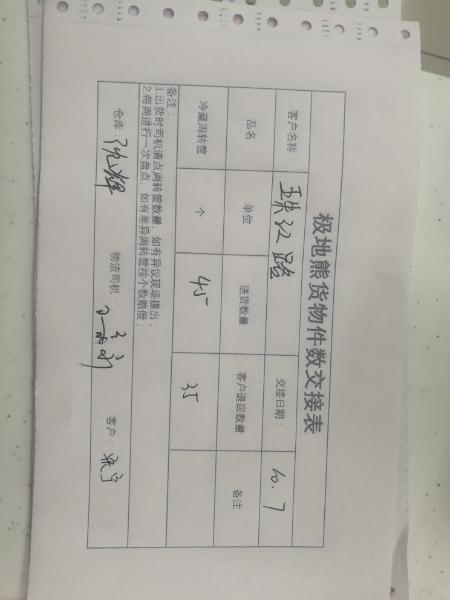 极地熊货物件数交接表
客户名称 珠江路 交接日期： 10.7
品名 单位 送货数量 客户退回数量 备注
冷藏周转筐 个 45 35
备注：
1.出货时司机清点周转筐数量，如有异议现场提出；
2.每周进行一次盘点，如有差异周转筐按个数赔偿；
仓库： 沈辉 物流司机： 客户：